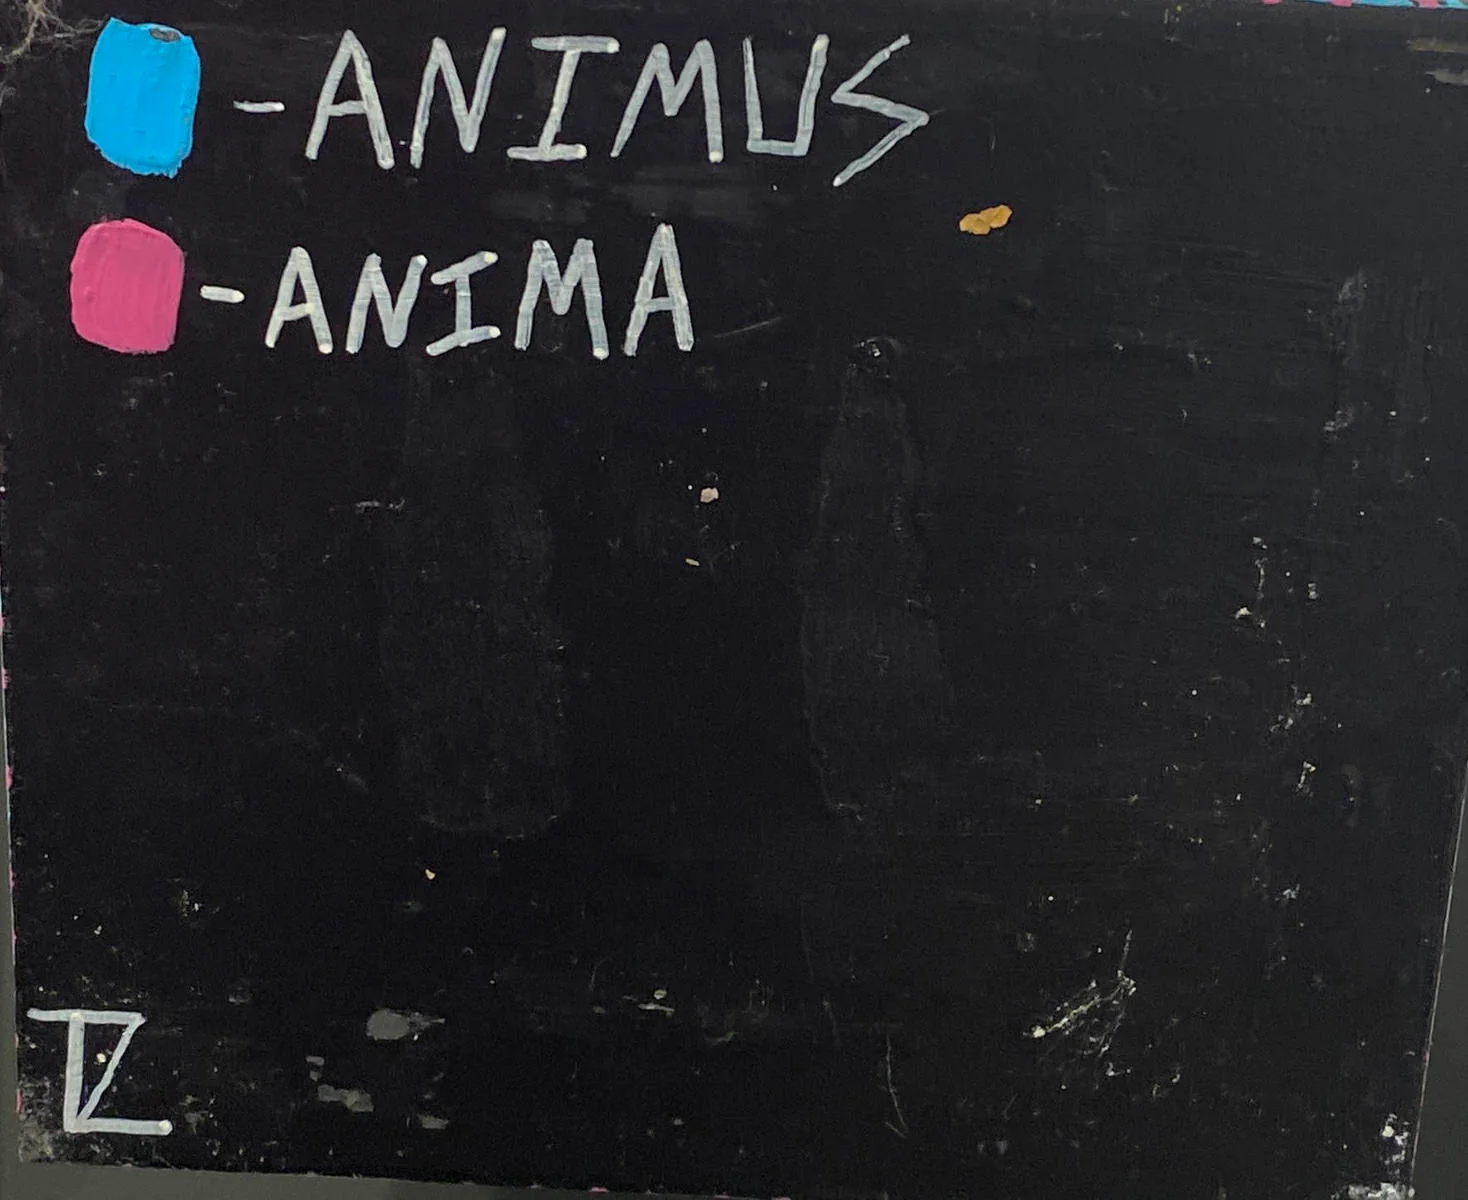 - ANIMUS
- ANIMA
TZ